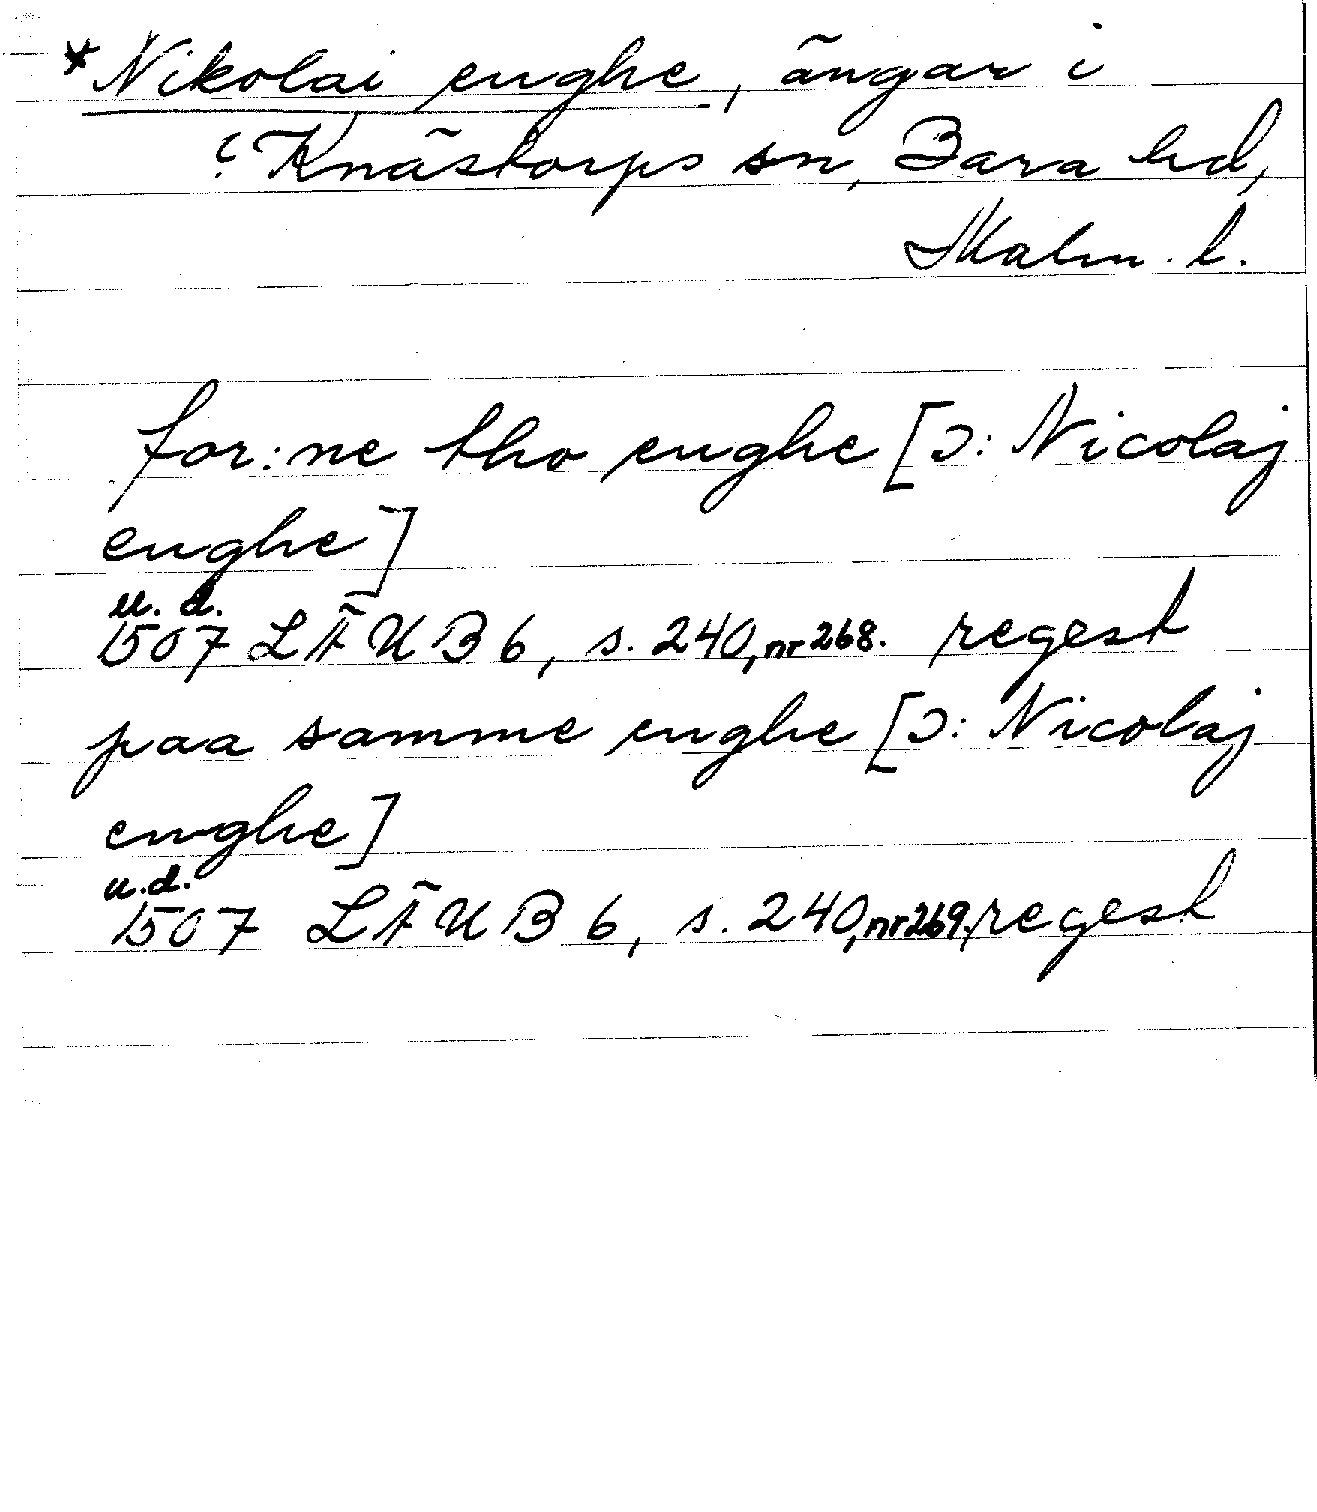 *Nikolai enghe, ängar i
? Knästorps sn, Bara hd,
Malm. l.
for:ne tho enghe [ɔ: Nicolaj
enghe]
u. d.
1507 LÄUB 6, s. 240, nr 268. regest
paa samme enghe [ɔ: Nicolaj
enghe]
u.d.
1507 LÄUB 6, s. 240, nr 269, regest